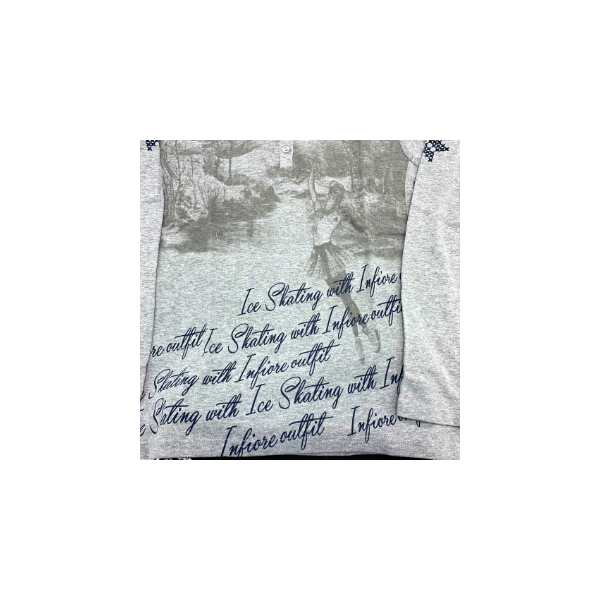 Ice Skating with Infiore
re outfit Ice Skating with Infiore outfit
Skating with Infiore outfit
Sating with Ice Skating with Inf
Infiore outfit Infiore